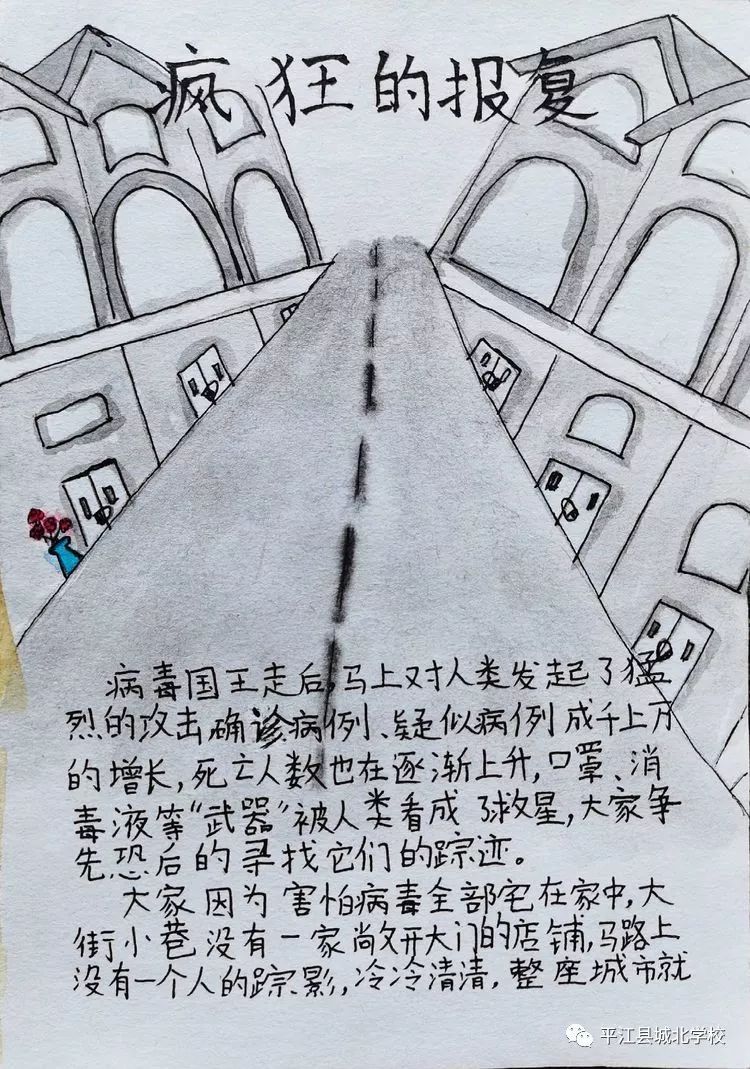 疯狂的报复
病毒国王走后,马上对人类发起了猛
烈的攻击确诊病例、疑似病例成千上万
的增长,死亡人数也在逐渐上升,口罩、消
毒液等“武器”被人类看成了救星,大家争
先恐后的寻找它们的踪迹。
大家因为害怕病毒全部宅在家中,大
街小巷没有一家尚敞开大门的店铺,马路上
没有一个人的踪影,冷冷清清,整座城市就
平江县城北学校